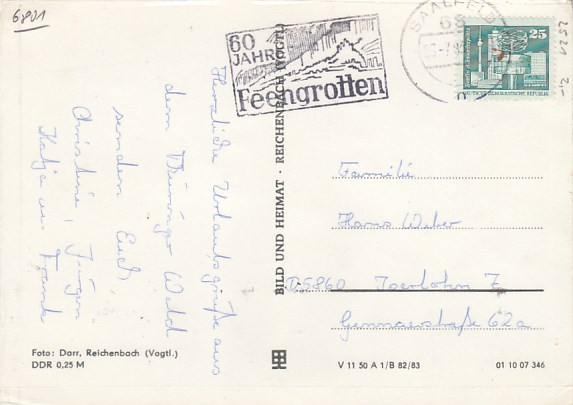 6801
60
JAHRE
Feengrotten
SAALFELD
68
25
DEUTSCHE DEMOKRATISCHE REPUBLIK
Herzliche Urlaubsgrüße aus
dem Thüringer Wald
senden Euch
Christine, Jürgen
Katja u. Frank
BILD UND HEIMAT · REICHENBACH (VOGTL)
Familie
Hans Weber
D5860 Iserlohn 7
62a
Foto: Darr, Reichenbach (Vogtl.)
DDR 0,25 M
V 11 50 A 1/B 82/83
01 10 07 346